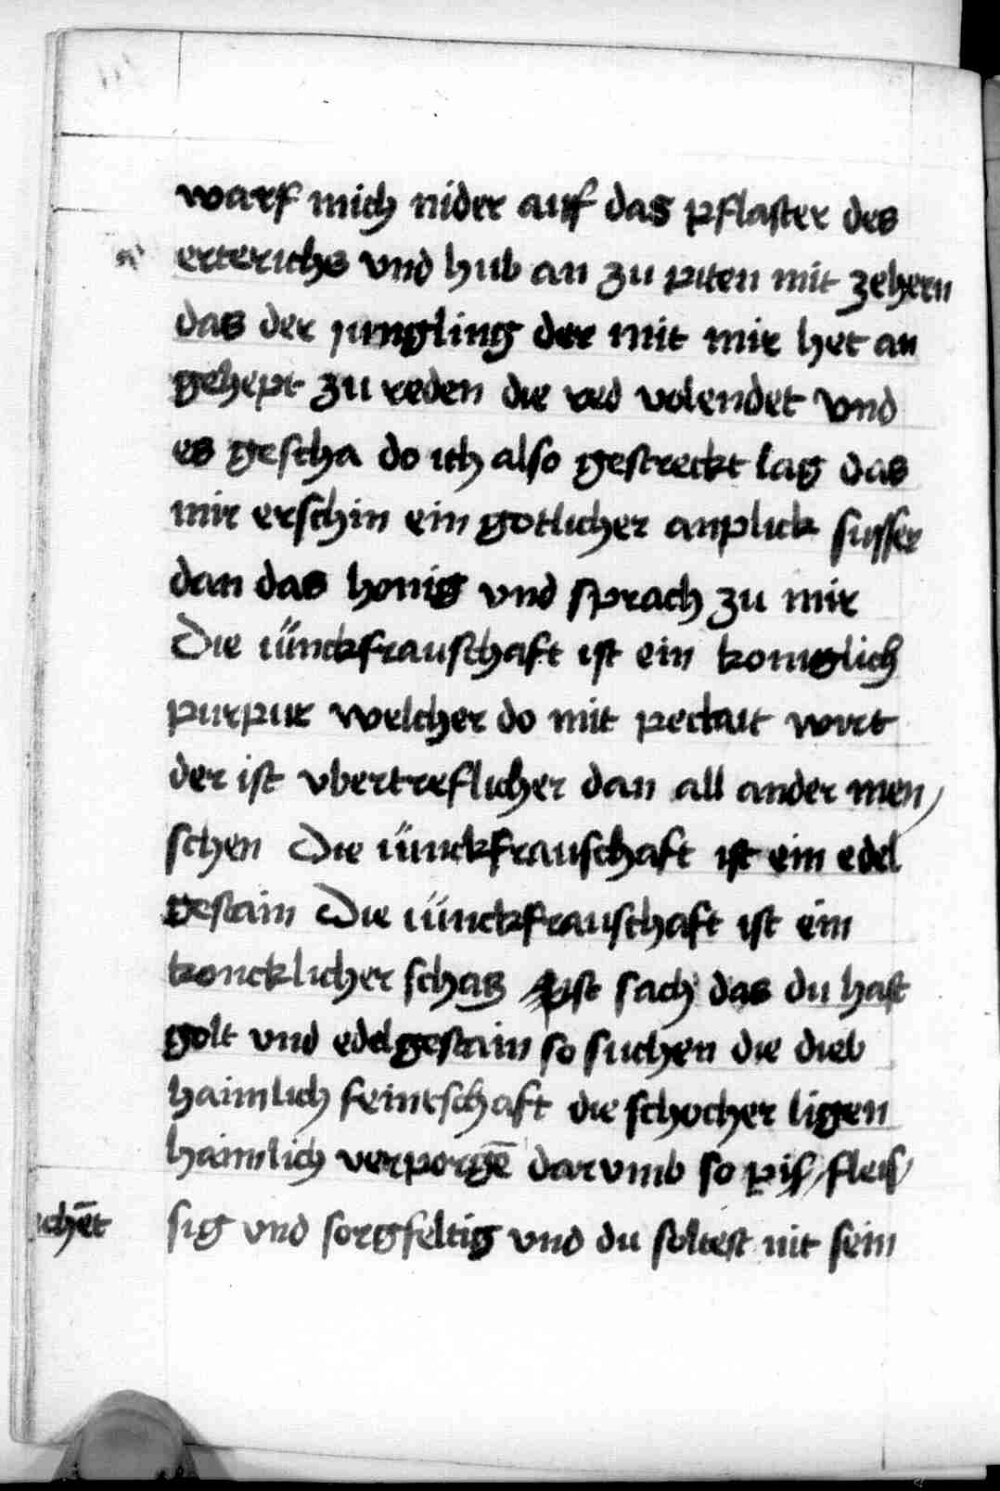 warf mich nider auf das pflaster des
erterichs vnd hub an zu piten mit zehern
das der jungling der mit mir het an
gehept zu reden die red volendet vnd
es gescha do ich also gestreckt lag das
mir erschin ein gotlicher anplick susser
dan das honig vnd sprach zu mir
Die iünckfrauschaft ist ein koniglich
purpur welcher do mit peclait wirt
der ist vbertreflicher dan all ander men/
schen Die iünckfrauschaft ist ein edel
gestain Die iünckfrauschaft ist ein
koncklicher schatz ist sach das du hast
golt vnd edelgestain so suchen die dieb
haimlich feintschaft die schocher ligen
haimlich verporgē dar vmb so pis fleis/
sig vnd sorgfeltig vnd du soltest nit sein